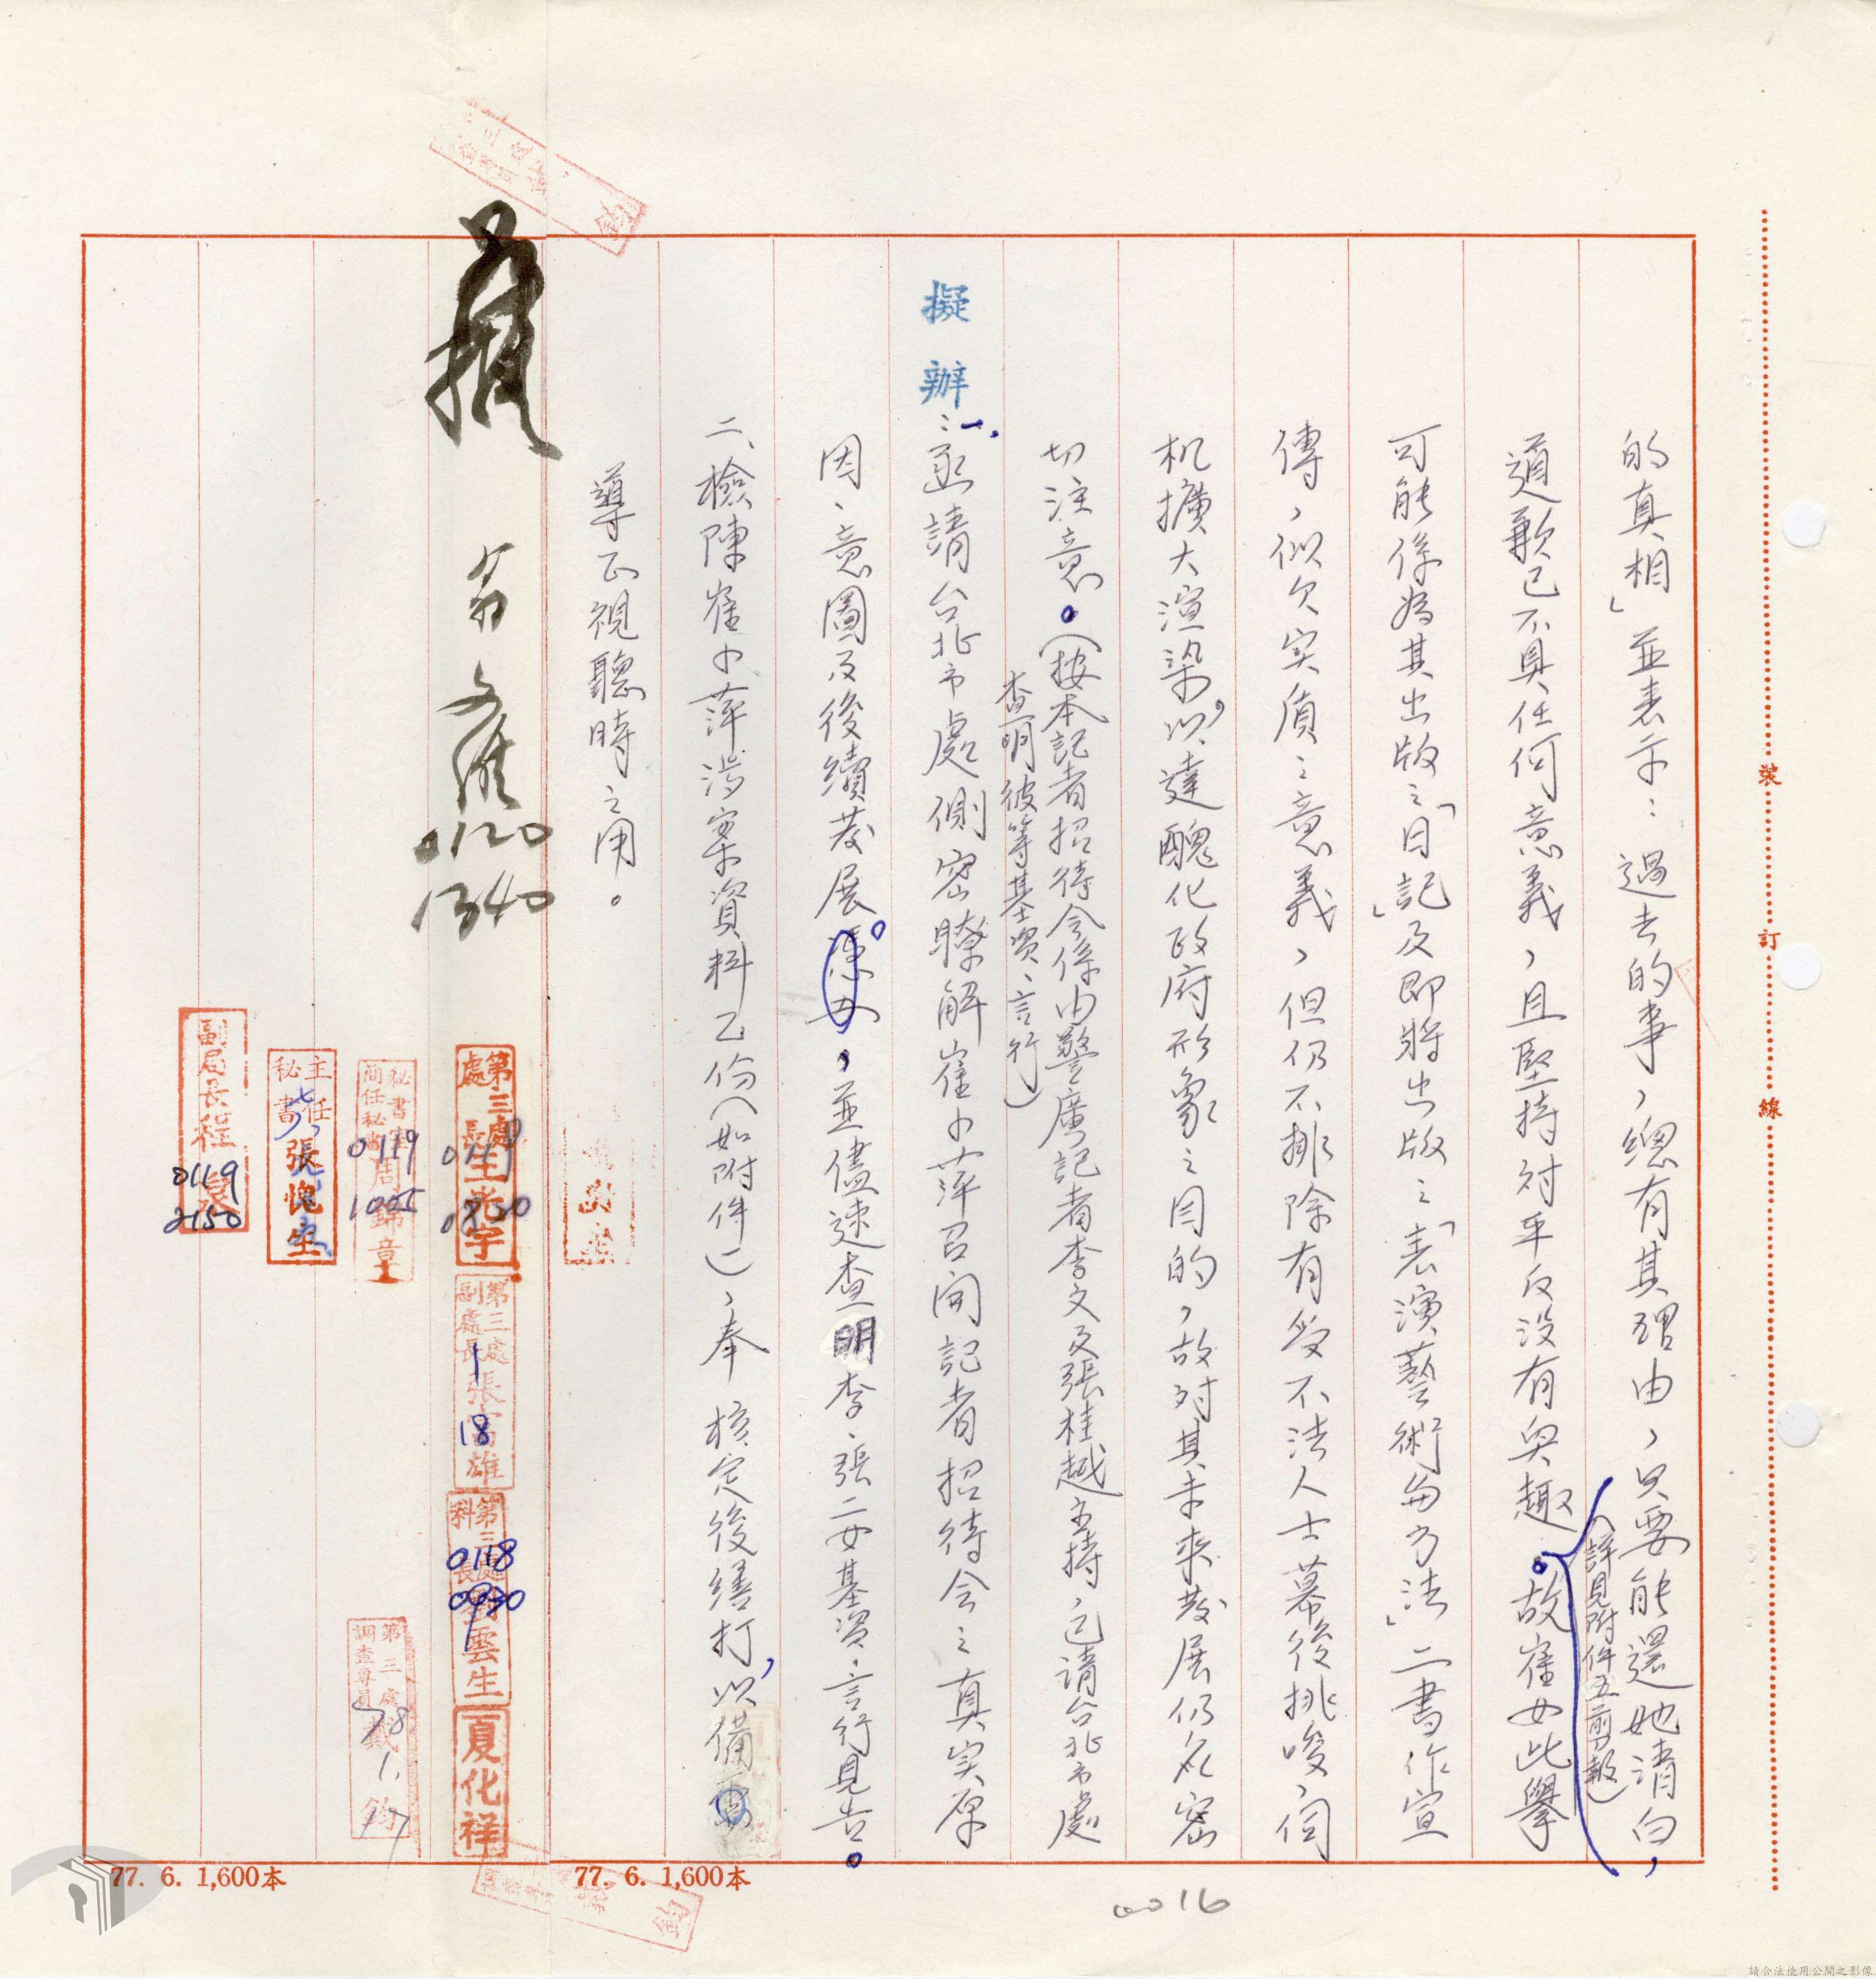 的真相」並表示：過去的事，總有其理由，只要能還她清白，
（詳見附件五剪報）
道歉已不具任何意義，且堅持對平反沒有興趣。故崔女此舉
可能係為其出版之「日記」及即將出版之「表演藝術与方法」二書作宣
傳，似欠实质之意義，但仍不排除有受不法人士幕後挑唆，伺
机擴大渲染，以達醜化政府形象之目的，故对其未來发展仍應密
切注意。（按本記者招待会係由警廣記者李文及張桂越主持，已請台北市處
查明彼等基資、言行）
擬辦：一、函請台北市處側密瞭解崔小萍召開記者招待会之真实原
因、意圖及後續发展。，並儘速查明李、張二女基資、言行見告。
二、檢陳崔小萍涉案資料乙份（如附件），奉 核定後繕打，以備
導正視聽時之用。
翁文維
0120
1340
第三處處長
0119
第三處副處長張富雄
18
第三處科長劉雲生
0118
0930
夏化祥
秘書室簡任秘書周錦章
0119
1005
主任秘書張愧生
副局長程
0119
2150
第三處調查專員戴鈞
78
1.
17
裝
訂
線
77. 6. 1,600本
77. 6. 1,600本
0016
請合法使用公開之影像